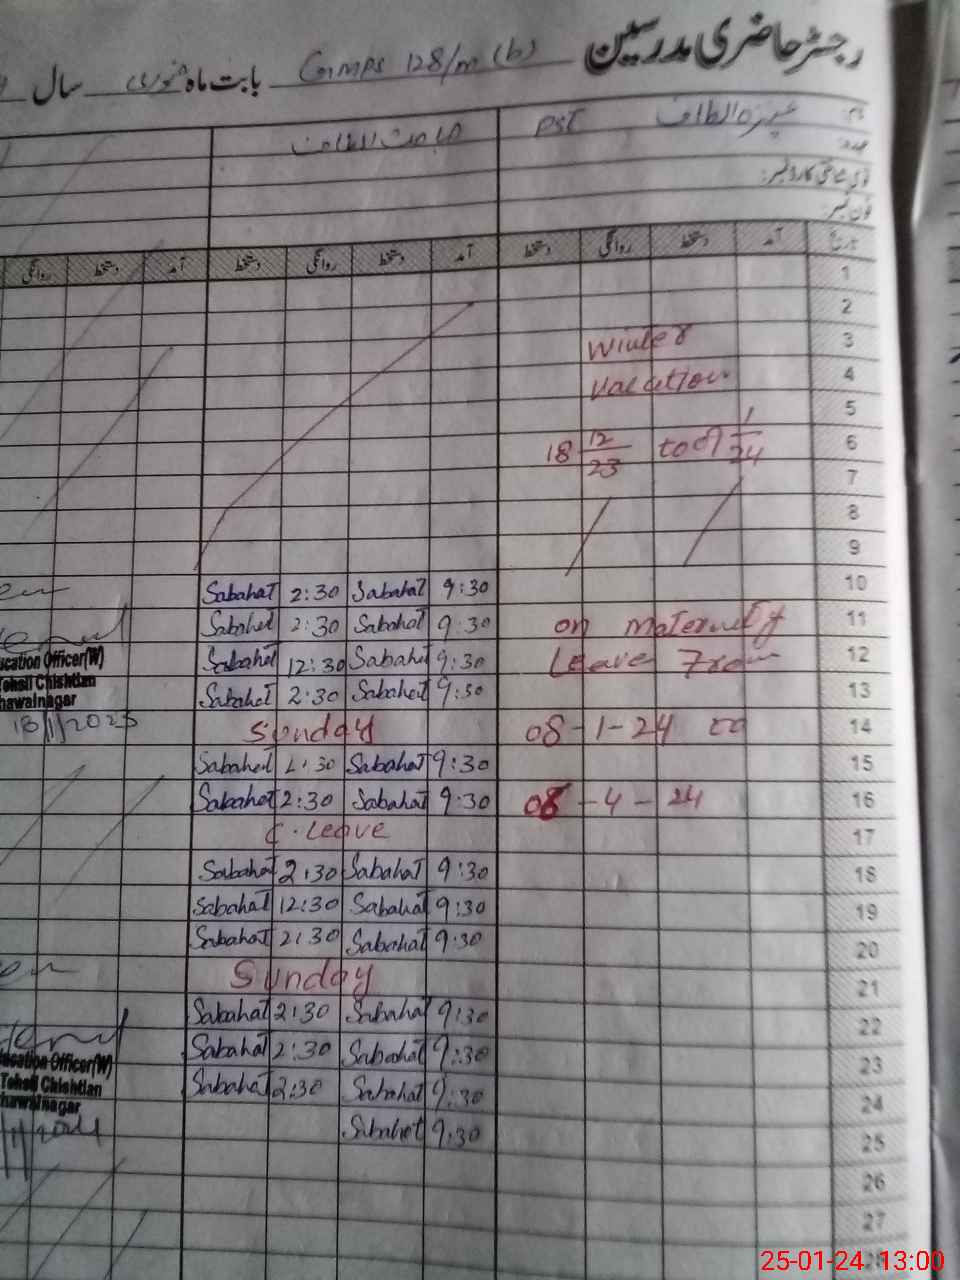 رجسٹر حاضری مدرسین GMPS 128/m (b) بابت ماہ جنوری سال
نام: الطاف PST صباحت الطاف
عہدہ:
شناختی کارڈ نمبر:
فون نمبر:
تاریخ آمد دستخط روانگی دستخط آمد دستخط روانگی دستخط آمد دستخط روانگی
1
2
Winter 3
vacation 4
5
18 12/23 to 09 1/24 6
7
8
9
Sabahat 2:30 Sabahat 9:30 10
Sabahat 2:30 Sabahat 9:30 on maternity 11
ucation Officer(W) Sabahat 12:30 Sabahat 9:30 Leave From 12
Tehsil Chishtian Sabahat 2:30 Sabahat 9:30 13
hawalnagar
18/1/2023 Sunday 08-1-24 to 14
Sabahat 2:30 Sabahat 9:30 15
Sabahat 2:30 Sabahat 9:30 08-4-24 16
C.Leave 17
Sabahat 2:30 Sabahat 9:30 18
Sabahat 12:30 Sabahat 9:30 19
Sabahat 2:30 Sabahat 9:30 20
Sunday 21
Sabahat 2:30 Sabahat 9:30 22
ducation Officer(W) Sabahat 2:30 Sabahat 9:30 23
Tehsil Chishtian Sabahat 2:30 Sabahat 9:30 24
hawalnagar
Sabahat 9:30 25
26
27
28
25-01-24 13:00